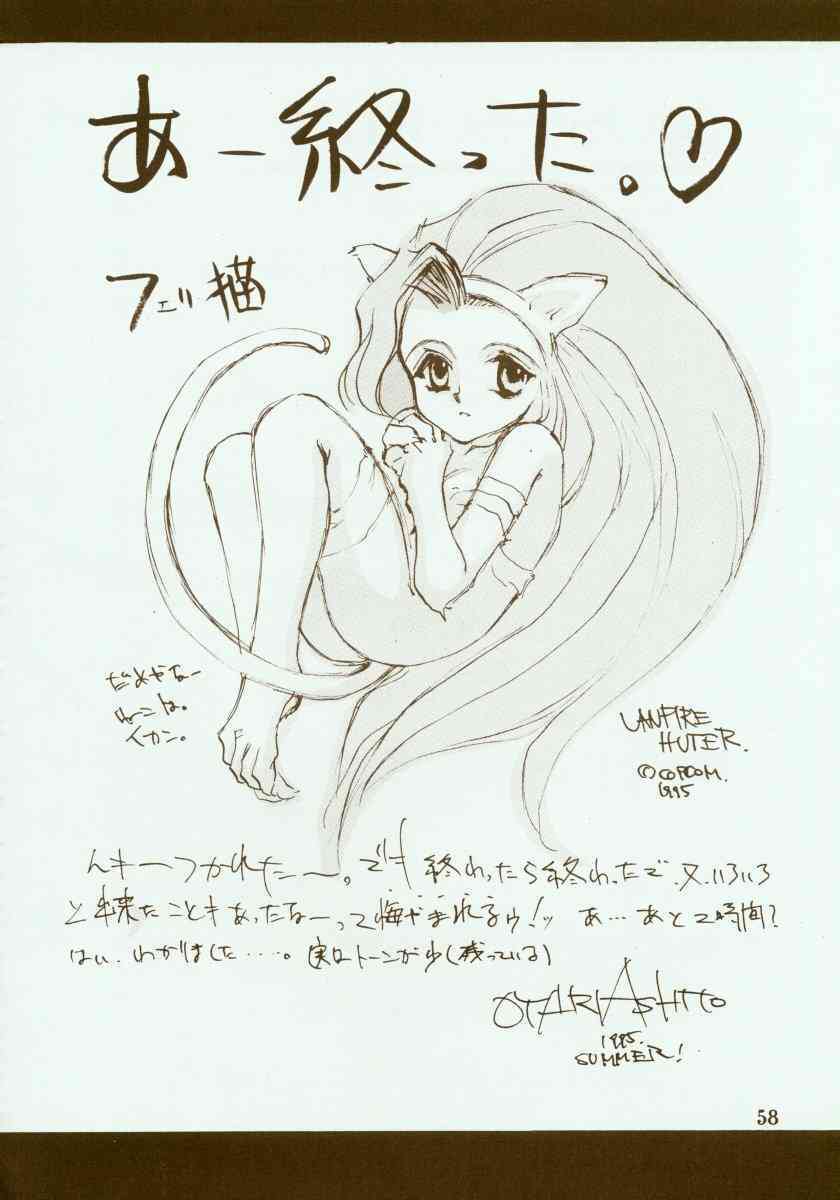 あー終った。♡
フェリ猫
だめやなー
ねこは。
イカン。
VANPIRE
HUTER.
©COPCOM.
1995
んキーつかれたー。でも終わったら終わったで、又、いろいろ
と出来たこともあったなーって悔やまれるゥ!ッ あ…あと2時間?
はい、わかりました‥‥。実はトーンがゆ(残っている)
OTARIASHITO
1995.
SUMMER!
58